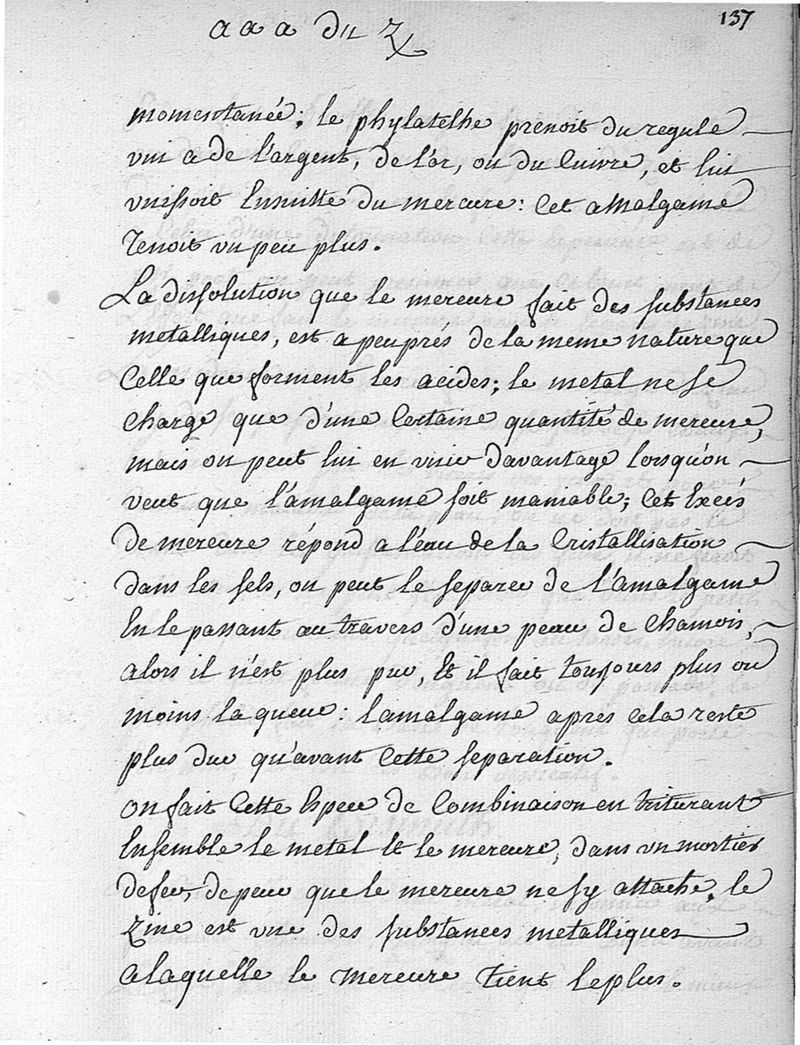 137
a a a du Z
momentanée; le phylatethe prenoit du regule
uni a de l'argent, de l'or, ou du cuivre, et lui
unissoit Ensuitte du mercure: Cet amalgame
Tenoit un peu plus.
La dissolution que le mercure fait des substances
metalliques, est a peuprés de la meme nature que
Celle que forment les acides; le metal ne se
charge que d'une Certaine quantité de mercure,
mais on peut lui en unir davantage Lorsqu'on
veut que l'amalgame soit maniable; Cet Excés
de mercure répond a l'eau de la Cristallisation
dans les sels, on peut le separer de l'amalgame
En le passant au travers d'une peau de chamois,
alors il n'est plus pur, Et il fait toujours plus ou
moins la queue: lamalgame apres cela reste
plus dur qu'avant Cette separation.
on fait Cette Espece de Combinaison en triturant
Ensemble le metal Et le mercure, dans un mortier
de fer, de peur que le mercure ne sy attache, le
zinc est une des substances metalliques
a laquelle le mercure tient le plus.